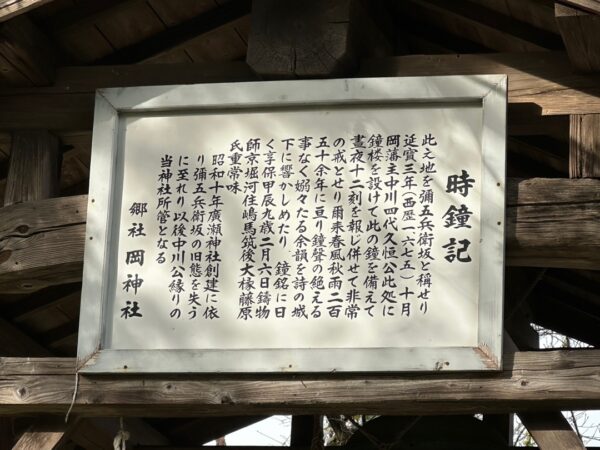 時鐘記
此之地を彌五兵衛坂と称せり
延寶三年（西歴一六七五）十月
岡藩主中川四代久恒公此処に
鐘楼を設けて此の鐘を備えて
晝夜十二刻を報じ併せて非常
の戒とせり爾来春風秋雨二百
五十余年に亘り鐘聲の絶える
事なく嫋々たる余韻を詩の城
下に響かしめたり　鐘銘に曰
く享保甲辰九歳二月六日鋳物
師京堀河住嶋馬筑後大椽藤原
氏重常味
昭和十年廣瀬神社創建に依
り彌五兵衛坂の旧態を失う
に至れり以後中川公縁りの
当神社所管となる
郷社 岡神社